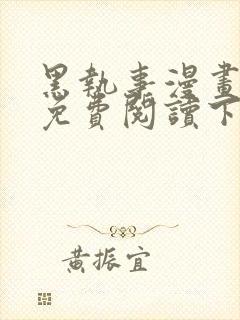 黑執事漫畫
免費閱讀下
黃振宜